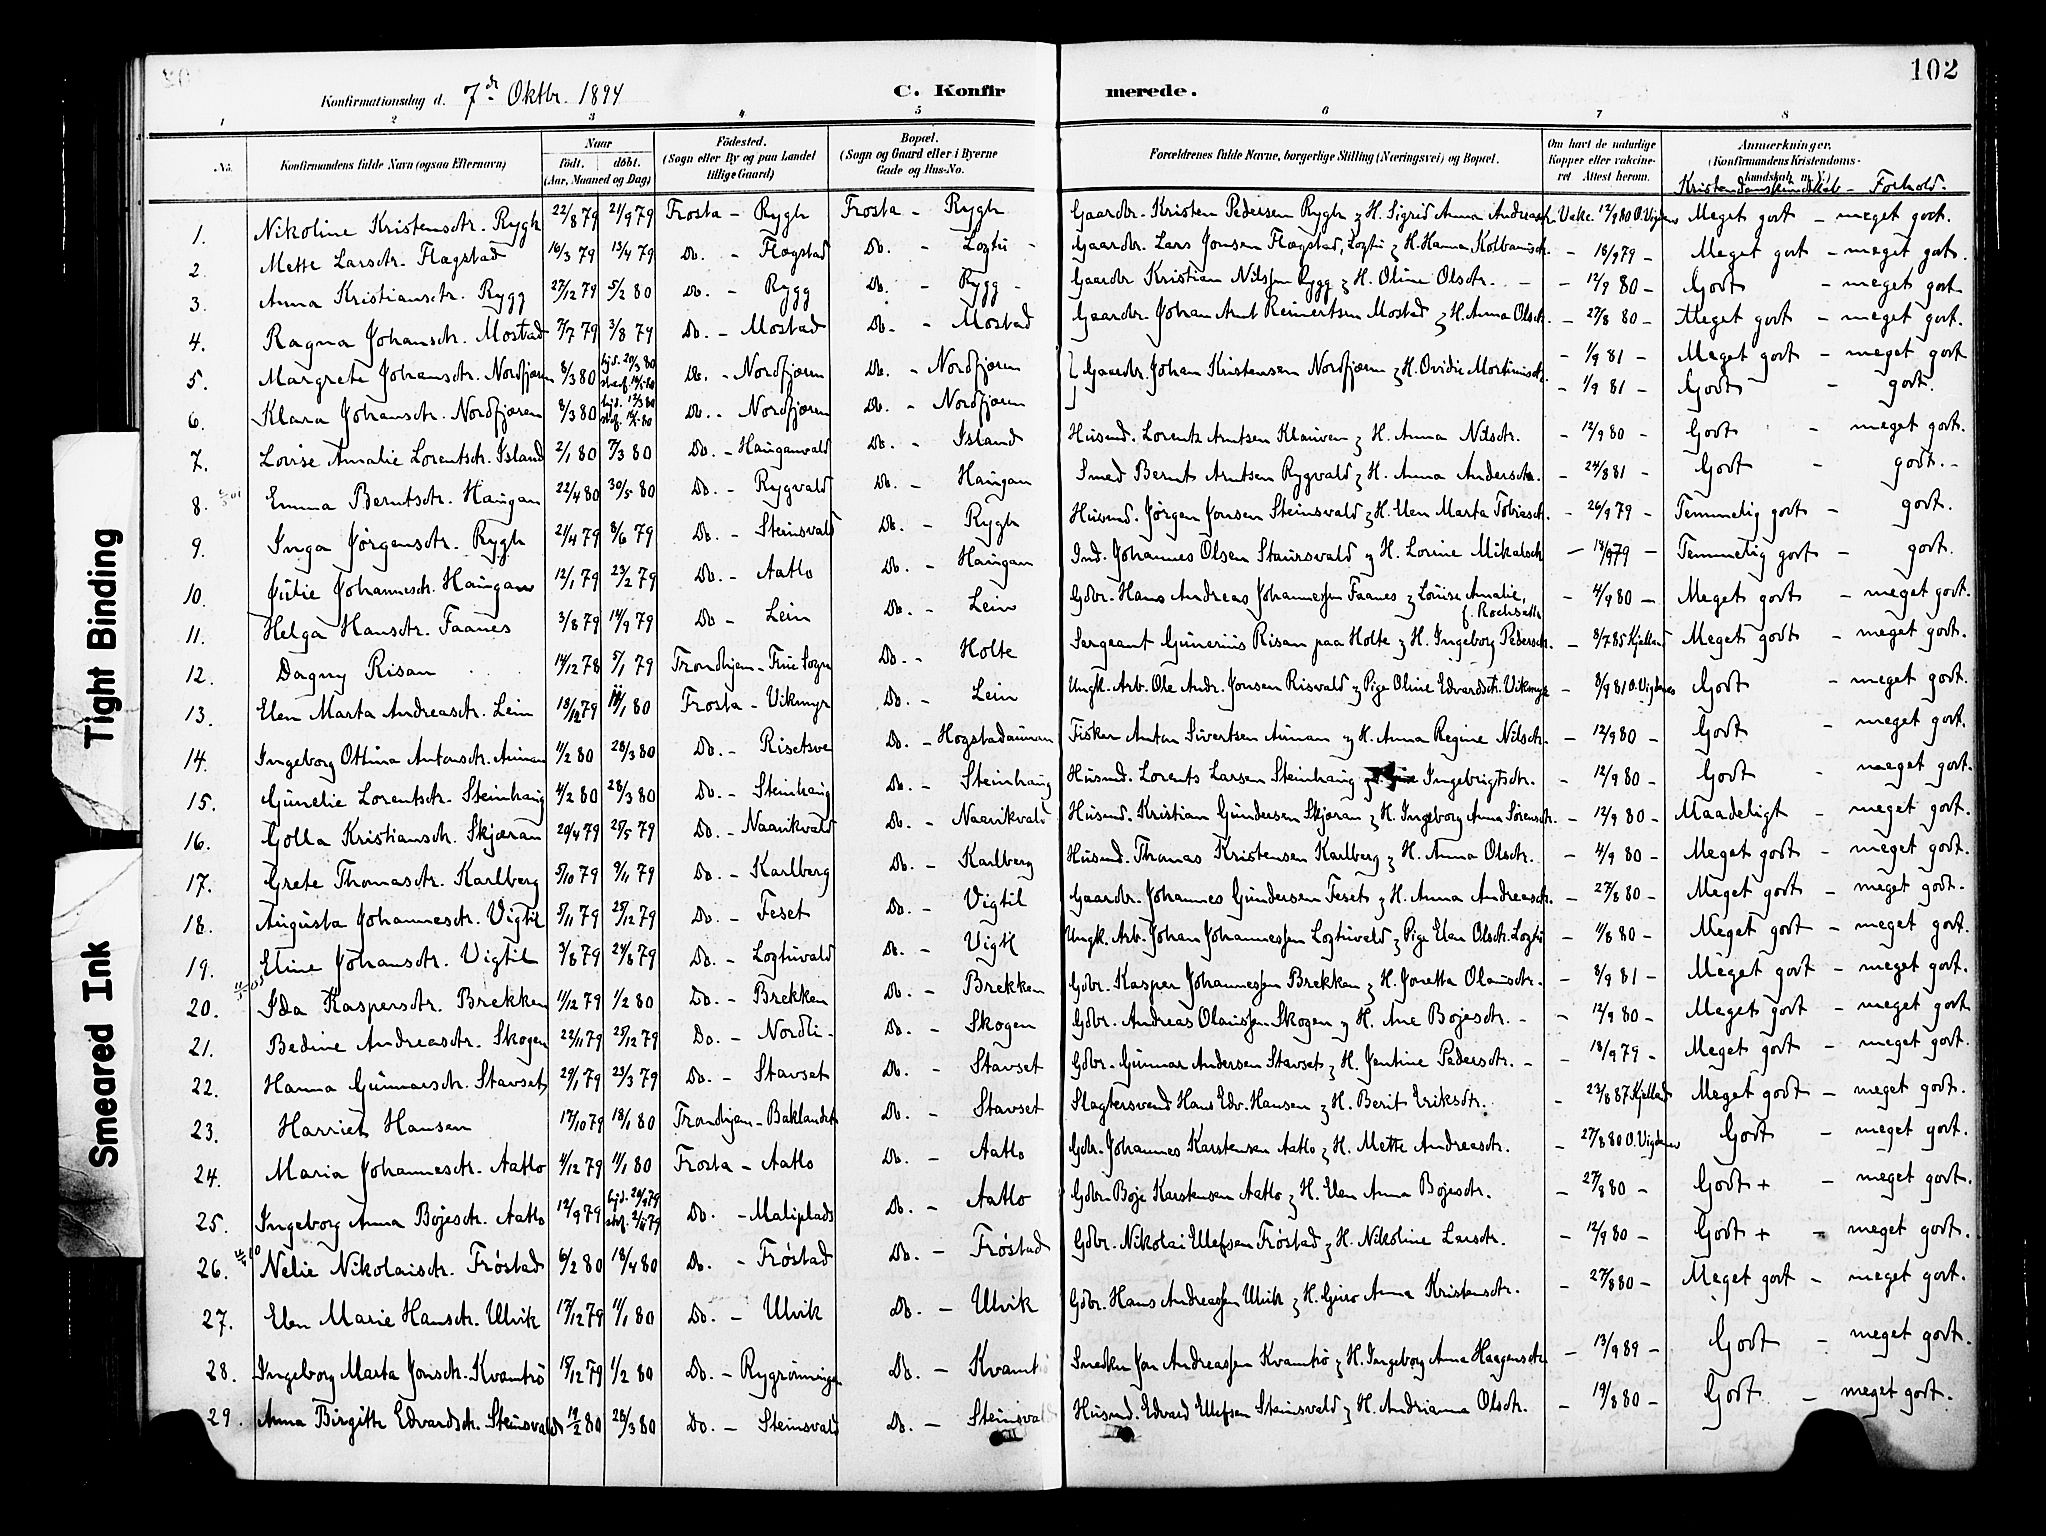 102
Konfirmationsdag d. 7de Oktbr. 1894 C. Konfirmerede.
1 2 3 4 5 6 7 8
No. Konfirmandens fulde Navn (ogsaa Efternavn) Naar født, døbt. (Aar, Maaned og Dag) Fødested. (Sogn eller By og paa Landet tillige Gaard) Bopæl. (Sogn og Gaard eller i Byerne Gade og Hus-No. Forældrenes fulde Navne, borgerlige Stilling (Næringsvei) og Bopæl. Om havt de naturlige Kopper eller vakcineret Attest herom. Anmærkninger. (Konfirmandens Kristendomskundskab m. V.)
Kristendomskundskab - Forhold.
1. Nikoline Kristensdtr. Rygh 22/8 79 21/9 79 Frosta - Rygh Frosta - Rygh Gaardbr. Kristen Pedersen Rygh & H. Sigrid Anna Andreasdtr. Vakc. 12/9 80 O. Vigdenes Meget godt - meget godt.
2. Mette Larsdtr. Flagstad 16/3 79 13/4 79 Do. - Flagstad Do. - Logtu - Gaardbr. Lars Jonsen Flagstad, Logtu & H. Hanna Kolbanusdtr. - 18/9 79 - Meget godt - meget godt.
3. Anna Kristiansdtr. Rygg 27/12 79 5/2 80 Do. - Rygg Do. - Rygg - Gaardbr. Kristian Nilssen Rygg & H. Oline Olsdtr. - - 12/9 80 - Godt - meget godt
4. Ragna Johansdtr. Mostad 7/7 79 3/8 79 Do. - Mostad Do. - Mostad Gaardbr. Johan Arnt Reinertsen Mostad & H. Anna Olsdtr. - 27/8 80 - Meget godt - meget godt.
5. Margrete Johansdtr. Nordfjæren 8/3 80 hjd. 20/3 80 Do. - Nordfjæren Do. - Nordfjæren Gaardbr. Johan Kristensen Nordfjæren & H. Ovidie Mortinusdtr. - 1/9 81 - Meget godt - meget godt
6. Klara Johansdtr. Nordfjæren 8/3 80 Do. - Nordfjæren Do. - Nordfjæren - 1/9 81 - Godt - godt.
7. Lovise Amalie Lorentsdtr. Island 2/1 80 7/3 80 Do. - Hauganvald Do. - Island Husmd. Lorents Arntsen Klauven & H. Anna Nilsdtr. - 12/9 80 - Godt - meget godt.
8. Emma Berntsdtr. Haugan 22/4 80 30/5 80 Do. - Rygvald Do. - Haugan Smed Bernt Arntsen Rygvald & H. Anna Andersdtr. - 24/8 81 - Godt - godt. -
9. Inga Jørgensdtr. Rygh 21/4 79 8/6 79 Do. - Steinsvald Do. - Rygh Husmd. Jørgen Jonsen Steinsvald & H. Elen Marta Tobiasdtr. - 26/9 79 - Temmelig godt - godt.
10. Julie Johannesdtr. Haugan 12/1 79 23/2 79 Do. - Aatlo Do. - Haugan Ind. Johannes Olsen & H. Lorine Mikalsdtr. - 18/9 79 - Temmelig godt - godt.
11. Helga Hansdtr. Faanes 3/8 79 14/9 79 Do. - Lein Do. - Lein Gdbr. Hans Andreas Johannessen Faanes & Louise Amalie, f. Rochseth - 4/9 80 - Meget godt - meget godt.
12. Dagny Risan 14/12 78 5/1 79 Trondhjem - Frue Sogn Do. - Holte Sergeant Gunerius Risan paa Holte & H. Ingeborg Pedersdtr. - 8/7 85 Kjelland Meget godt - meget godt.
13. Elen Marta Andreasdtr. Lein 18/12 79 11/1 80 Frosta - Vikmyr Do. - Lein Ungk. Arb. Ole Andr. Jonsen Risvald & Pige Oline Edvardsdt. Vikmyr - 8/9 81 O. Vigdenes Godt - meget godt.
14. Ingeborg Ottina Antonsdtr. Aunan 11/2 80 28/3 80 Do. - Risetsve Do. - Hogstadaunan Fisker Anton Sivertsen Aunan & H. Anna Regine Nilsdtr. - 12/9 80 - Godt - meget godt.
15. Gunelie Lorentsdtr. Steinhaug 4/2 80 28/3 80 Do. - Steinhaug Do. - Steinhaug Husmd. Lorents Larsen Steinhaug & Ingebrigtsdtr. - 12/9 80 - Godt - meget godt.
16. Golla Kristiansdtr. Skjæran 20/4 79 25/5 79 Do. - Naavikvald Do. - Naavikvald Husmd. Kristian Gundersen Skjæran & H. Ingeborg Anna Sørensdtr. - 12/9 80 - Maadeligt - meget godt.
17. Grete Thomasdtr. Karlberg 5/10 79 9/11 79 Do. - Karlberg Do. - Karlberg Husmd. Thomas Kristensen Karlberg & H. Anna Olsdtr. - 4/9 80 - Meget godt - meget godt.
18. Augusta Johannesdtr. Vigtil 5/11 79 25/12 79 Do. - Feset Do. - Vigtil Gaardbr. Johannes Gundersen Feset & H. Anna Andreasdtr. - 27/8 80 - Meget godt - meget godt.
19. Eline Johansdtr. Vigtil 3/8 79 24/8 79 Do. - Logtuvald Do. - Vigtil Ungk. Arb. Johan Johannessen Logtuvald & Pige Elen Olsdtr. Logtu - 11/8 80 - Meget godt - meget godt.
20. Ida Kaspersdtr. Brekken 11/12 79 1/2 80 Do. - Brekken Do. - Brekken Gdbr. Kasper Johannessen Brekken & H. Jonetta Olausdtr. - 8/9 81 - Meget godt - meget godt.
21. Bedine Andreasdtr. Skogen 22/11 79 25/12 79 Do. - Nordli - Do. - Skogen Gdbr. Andreas Olaussen Skogen & H. Ane Bojesdtr. - - 12/9 80 - Meget godt - meget godt
22. Hanna Gunnarsdtr. Stavset 29/1 79 23/3 79 Do. - Stavset Do. - Stavset Gdbr. Gunnar Andersen Stavset & H. Jentine Pedersdtr. - - 18/9 79 - Meget godt - meget godt.
23. Harriet Hansen 17/10 79 18/1 80 Trondhjem - Baklandet Do. - Stavset Slagtersvend Hans Edv. Hansen & H. Berit Eriksdtr. - 23/8 87 Kjelland Meget godt - meget godt.
24. Maria Johannesdtr. Aatlo 4/12 79 11/1 80 Frosta - Aatlo Do. - Aatlo Gdbr. Johannes Karstensen Aatlo & H. Mette Andreasdtr. - 27/8 80 O. Vigdenes Godt - meget godt.
25. Ingeborg Anna Bojesdtr. Aatlo 12/9 79 Do. - Maliplads Do. - Aatlo Gdbr. Boje Karstensen Aatlo & H. Elen Anna Bojesdtr. - 27/8 80 - Godt + - meget godt.
26. Nelie Nikolaisdtr. Frøstad 6/2 80 18/4 80 Do. - Frøstad Do. - Frøstad Gdbr. Nikolai Ellefsen Frøstad & H. Nikoline Larsdtr. - 12/9 80 - Godt + - meget godt.
27. Elen Marie Hansdtr. Ulvik 17/12 79 11/1 80 Do. - Ulvik Do. - Ulvik Gdbr. Hans Andreassen Ulvik & H. Guro Anna Kristensdtr. - 27/8 80 - Meget godt - meget godt.
28. Ingeborg Marta Jonsdtr. Kvamtrø 15/12 79 1/2 80 Do. - Rygrønningen Do. - Kvamtrø Snedker Jon Andreassen Kvamtrø & H. Ingeborg Anna Haagensdtr - 13/9 89 - Godt - meget godt.
29. Anna Birgitte Edvardsdtr. Steinsvald 19/2 80 28/3 80 Do. - Steinsvald Do. - Steinsvald Husmd. Edvard Ellefsen Steinsvald & H. Andrianna Olsdtr. - 19/8 80 - Godt - meget godt.
Tight Binding
Smeared Ink